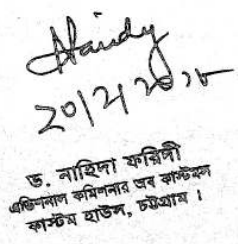 ২০/২/২০১৮
ড. নাহিদা ফরিদী
এডিশনাল কমিশনার অব কাস্টমস
কাস্টম হাউস, চট্টগ্রাম ।